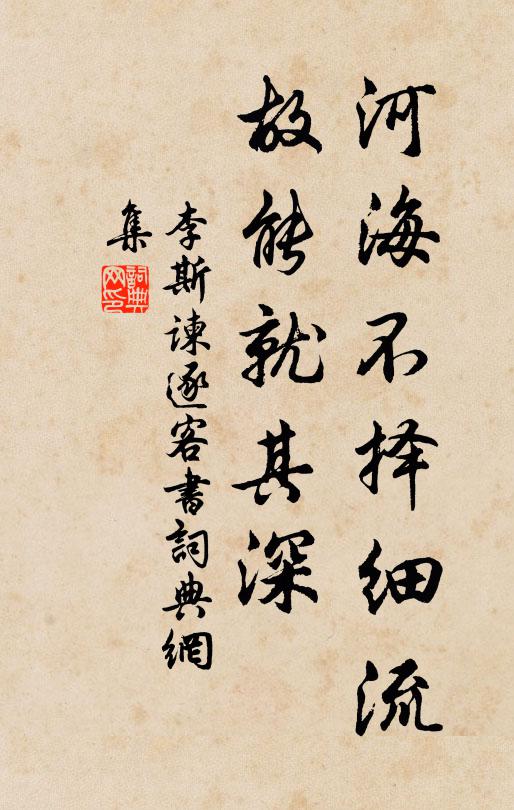 河海不择细流
故能就其深
李斯諫逐客書詞典網
集
詞典
网印